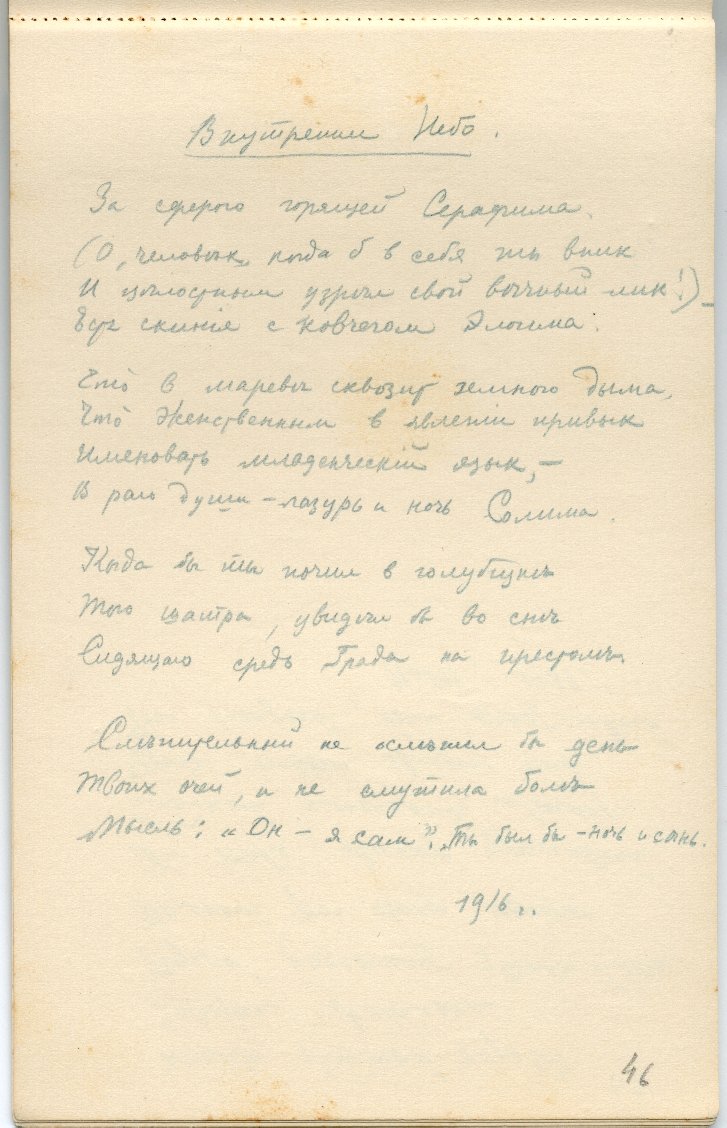 Внутреннее Небо.
За сферою горящей Серафима,
(О, человѣк, когда б в себя ты вник
И цѣлостным узрѣл свой вѣчный лик!) –
Есть скинія с ковчегом Элогима.
Что́ в маревѣ сквозит земного дыма,
Что́ Женственным в явленіи привык
Именовать младенческій язык, –
В раю души – лазурь и ночь Солима.
Когда бы ты почил в голубизнѣ
Того шатра, увидѣл бы во снѣ
Сидящаго средь Града на престолѣ.
Слѣпительный не ослѣпил бы день
Твоих очей, и не смутила болѣ
Мысль: „Он – я сам”. Ты был бы – ночь и сѣнь.
1916 г.
46